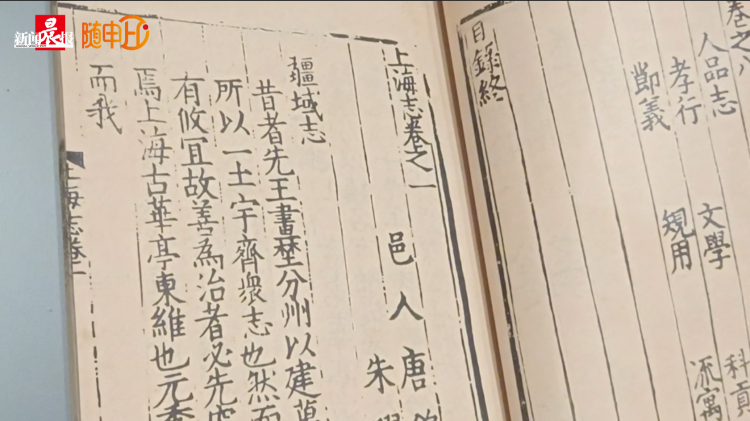 新闻晨报
随申
卷之八
人品志
孝行 文學 科貢
節義 規用 流寓
目録終
上海志卷之一
邑人唐
朱
疆域志
昔者先王書埜分州以建萬
所以一土宇齊衆志也然而
有攸冝故善為治者必先
焉上海古華亭東維也元
而我
上海志卷一